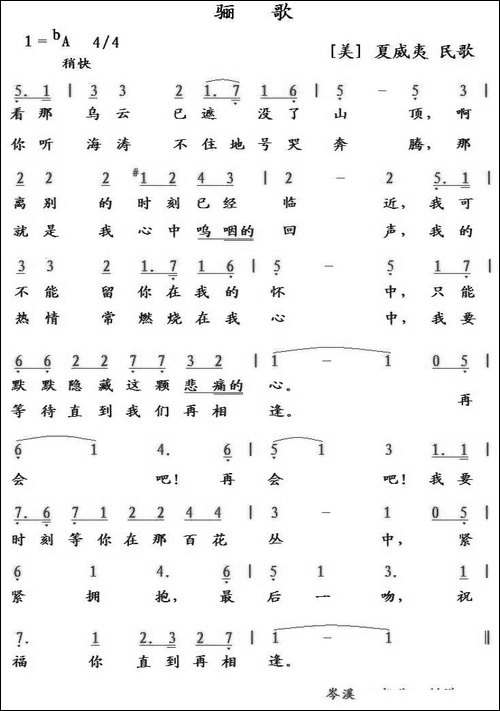 骊 歌
1 = bA 4/4
[美] 夏威夷 民歌
稍快
5. 1 | 3 3 2 1. 7 1 6 | 5 – 5 3 |
看那 乌云 已遮 没了 山 顶，啊
你听 海涛 不住地号哭奔 腾，那
2 2 2 #1 2 4 3 | 2 – 2 5. 1 |
离别 的 时刻已经 临 近，我可
就是 我 心中呜咽的 回 声，我的
3 3 2 1. 7 1 6 | 5 – 5 1 7 |
不能 留你在我的 怀 中，只能
热情 常燃烧在我 心 中，我要
6 6 2 2 7 7 3 2 | 1 – 1 0 5 |
默默隐藏这颗悲痛的 心。
等待直到我们再相 逢。 再
6 1 4. 6 | 5 1 3 1. 1 |
会 吧！再 会 吧！我要
7. 6 7 1 2 2 4 4 | 3 – 1 0 5 |
时刻等你在那百花 丛 中，紧
6 1 4. 6 | 5 1 3. 1 |
紧 拥 抱，最 后 一 吻，祝
7. 1 2. 3 2 7 | 1 – 1 ‖
福 你 直到再相 逢。
岑溪